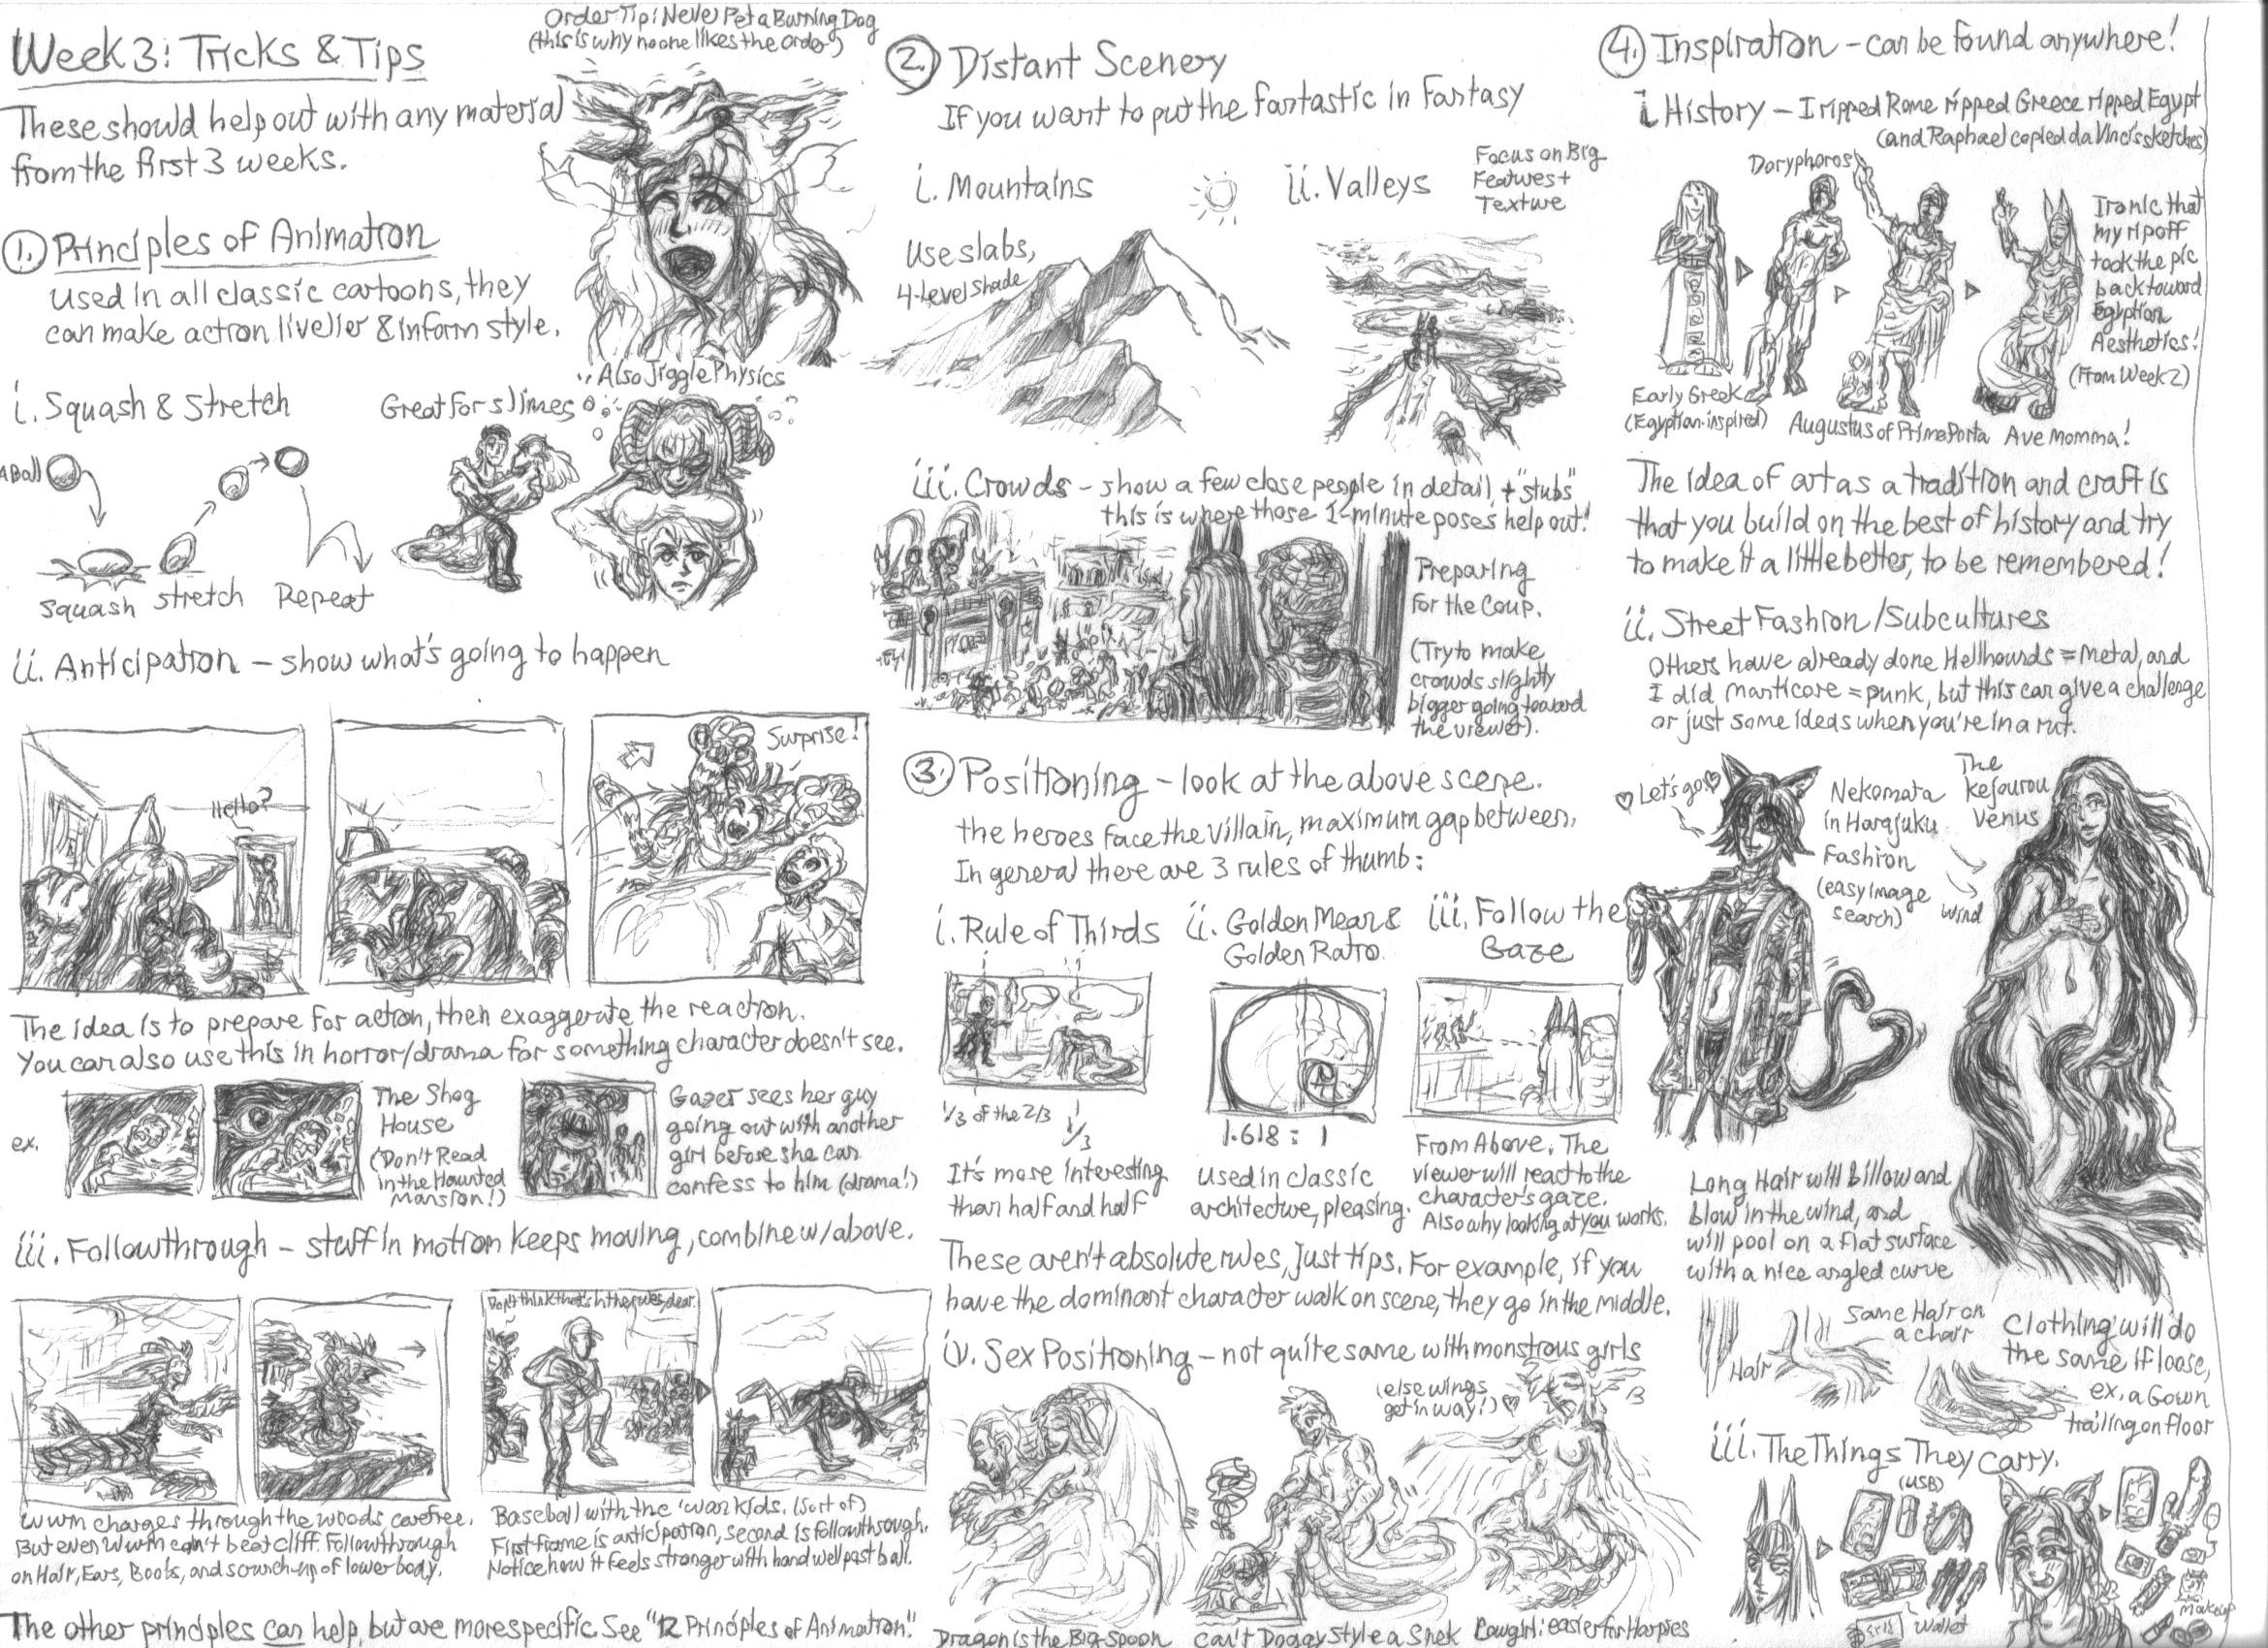 Week 3: Tricks & Tips
These should help out with any material
from the first 3 weeks.
Order Tip: Never Pet a Burning Dog
(this is why no one likes the order)
1. Principles of Animation
used in all classic cartoons, they
can make action livelier & inform style.
i. Squash & Stretch
A Ball
Squash
Stretch
Repeat
Great for slimes
Also Jiggle Physics
ii. Anticipation - show what's going to happen
Hello?
Surprise!
The idea is to prepare for action, then exaggerate the reaction.
You can also use this in horror/drama for something character doesn't see.
ex.
The Shog
House
(Don't Read
in the Haunted
Mansion!)
Gazer sees her guy
going out with another
girl before she can
confess to him (drama!)
iii. Followthrough - stuff in motion keeps moving, combine w/ above.
Don't think that's in the rules, dear.
Wurm charges through the woods carefree.
But even Wurm can't beat cliff. Followthrough
on Hair, Ears, Boobs, and scrunch-up of lower body.
Baseball with the 'war kids. (sort of)
First frame is anticipation, second is followthrough.
Notice how it feels stronger with hand well past ball.
The other principles can help, but are more specific. See "12 Principles of Animation."
2. Distant Scenery
If you want to put the fantastic in Fantasy
i. Mountains
Use slabs,
4-level shade
ii. Valleys
Focus on Big
Features +
Texture
iii. Crowds - show a few close people in detail, + "stubs"
this is where those 1-minute poses help out!
Preparing
for the Coup.
(Try to make
crowds slightly
bigger going toward
the viewer).
3. Positioning - look at the above scene.
the heroes face the villain, maximum gap between.
In general there are 3 rules of thumb:
i. Rule of Thirds
1/3 of the 2/3
1/3
It's more interesting
than half and half
ii. Golden Mean &
Golden Ratio
1.618 : 1
used in classic
architecture, pleasing.
iii. Follow the
Gaze
From Above: The
viewer will react to the
character's gaze.
Also why looking at you works.
These aren't absolute rules, just tips. For example, if you
have the dominant character walk on scene, they go in the middle.
iv. Sex Positioning - not quite same with monstrous girls
(else wings
get in way!)
Dragon is the Big Spoon
Can't Doggy Style a Snek
Cowgirl: easier for Harpies
4. Inspiration - can be found anywhere!
i History - I ripped Rome ripped Greece ripped Egypt
(and Raphael copied da Vinci's sketches)
Doryphoros
Early Greek
(Egyptian-inspired)
Augustus of Prima Porta
Ave Momma!
Ironic that
my ripoff
took the pic
back toward
Egyptian
Aesthetics!
(From Week 2)
The idea of art as a tradition and craft is
that you build on the best of history and try
to make it a little better, to be remembered!
ii. Street Fashion/Subcultures
Others have already done Hellhounds = Metal, and
I did manticore = punk, but this can give a challenge
or just some ideas when you're in a rut.
Let's go
Nekomata
in Harajuku
Fashion
(easy image
search)
The
Kejourou
Venus
wind
Long Hair will billow and
blow in the wind, and
will pool on a flat surface
with a nice angled curve
Hair
Same Hair on
a chair
Clothing will do
the same if loose,
ex. a Gown
trailing on floor
iii. The Things They Carry.
(USB)
Wallet
makeup